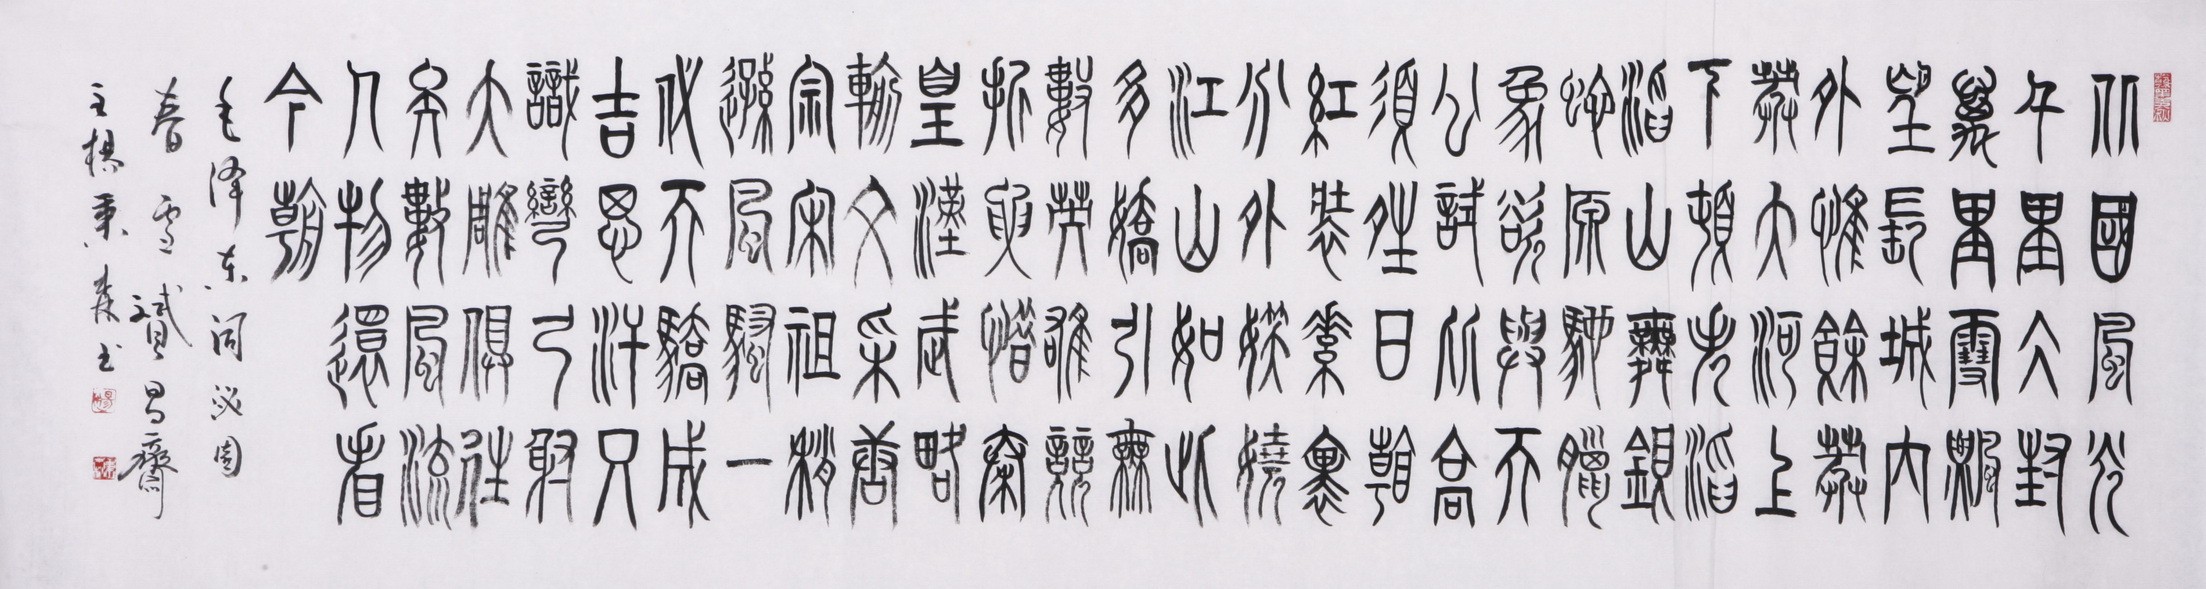 北國風光
千里冰封
萬里雪飄
望長城內
外惟餘莽
莽大河上
下頓失滔
滔山舞銀
蛇原馳臘
象欲與天
公試比高
須晴日看
紅裝素裹
分外妖嬈
江山如此
多嬌引無
數英雄競
折腰惜秦
皇漢武略
輸文采唐
宗宋祖稍
遜風騷一
代天驕成
吉思汗只
識彎弓射
大雕俱往
矣數風流
人物還看
今朝
毛泽东词沁园
春雪贇昌齋
主楊秉森书